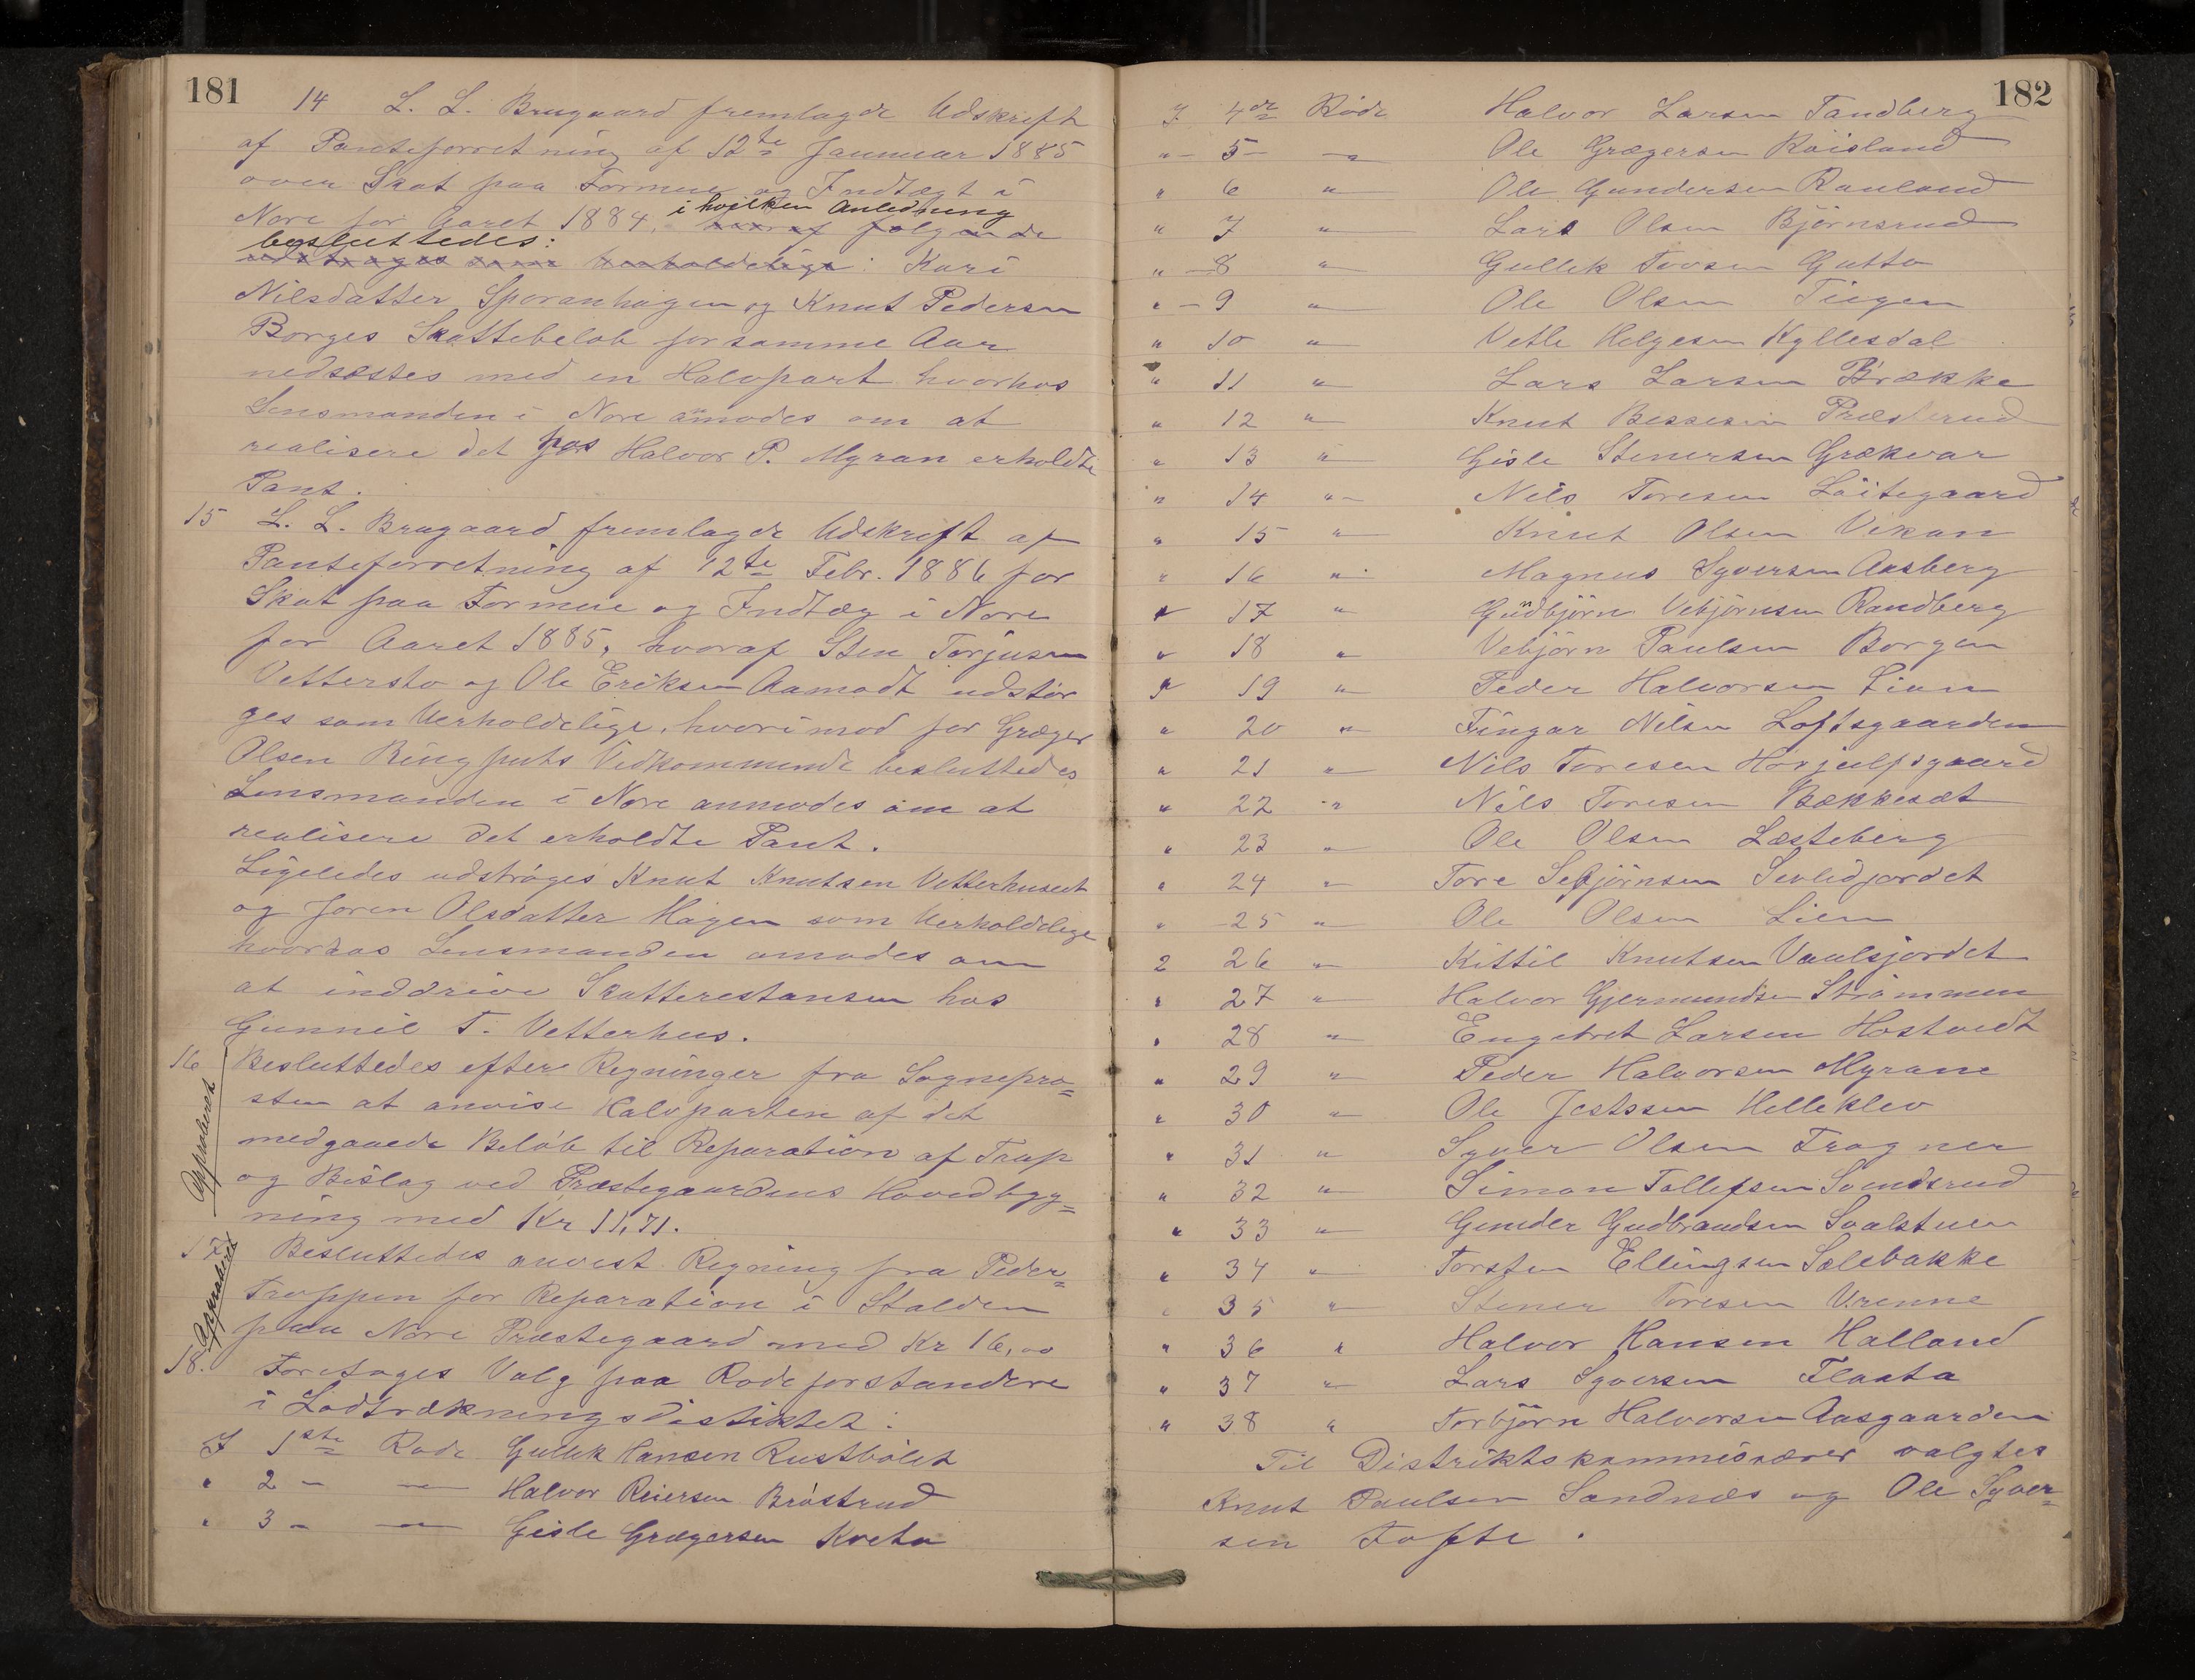 181
14 L. L. Brugaard fremlagde Udskrift
af Panteforretning af 12te Januuar 1885
over Skat paa Formue og Indtægt i
Nore for Aaret 1884, i hvilken Anledning hvoraf følgende
besluttedes: udstrøges som Uerholdelige: Kari
Nilsdatter Sporanhagen og Knut Pedersen
Borges Skattebeløb for samme Aar
nedsæstes med en Halvpart hvorhos
Lensmanden i Nore anmodes om at
realisere det hos Halvor P. Myran erholdte
Pant.
15 L. L. Brugaard fremlagde Udskrift af
Panteforretning af 12te Febr. 1886 for
Skat paa Formue og Indtæg i Nore
for Aaret 1885, hvoraf Sten Torjusen
Vettersto og Ole Eriksen Aamodt udstør
ges som Uerholdelige, hvorimod for Græger
Olsen Ringputs Vedkommende besluttedes
Lensmanden i Nore anmodes om at
realisere det erholdte Pant.
Ligeledes udstrøges Knut Knutsen Vetterhuseit
og Joren Olsdatter Hagen som Uerholdelige
hvorhos Lensmanden amodes om
at inddrive Skatterestansen hos
Gunnil T. Vetterhus.
16 Besluttedes efter Regninger fra Sognepre=
sten at anvise Halvparten af det
medgaaede Beløb til Reparation af Trap
og Bislag ved Præstegaardens Hovedbyg=
ning med Kr 11,71.
Approberet
17 Besluttedes anvist Regning fra Peder=
Trappen for Reparation i Stalden
paa Nore Præstegaard med Kr 16,00
Approberet
18. Foretoges Valg paa Rodeforstandere
i Lodtrækningsdistiktet:
I 1ste Rode Gullik Hansen Rustbølet
" 2 - — Halvor Reiersen Brøstrud
" 3 - — Gisle Grægersen Kveta
182
I 4de Rode Halvor Larsen Tandberg
" 5 — Ole Grægersen Røisland
" 6 " Ole Gundersen Rauland
" 7 " Lars Olsen Bjørnsrud
" 8 " Gullik Tovsen Gutto
" 9 " Ole Olsen Tingen
" 10 " Vetle Helgesen Kyllesdal
" 11 " Lars Larsen Brække
" 12 " Knut Bessesen Præsterud
" 13 " Gisle Stenersen Grækvar
" 14 " Nils Toresen Løitegaard
" 15 " Knut Olsen Vikan
" 16 " Magnus Syversen Aasberg
" 17 " Gudbjørn Vebjørnsen Randberg
" 18 " Vebjørn Paulsen Borgen
" 19 " Peder Halvorsen Lian
" 20 " Fingar Nilsen Loftsgaarden
" 21 " Nils Toresen Hovjulfsgaard
" 22 " Nils Toresen Bækkesæt
" 23 " Ole Olsen Læsteberg
" 24 " Tore Sebjørnsen Sevlidjordet
" 25 " Ole Olsen Lien
" 26 " Kittil Knutsen Vaalsjordet
" 27 " Halvor Gjermundsen Strømmen
" 28 " Engebret Larsen Hostvedt
" 29 " Peder Halvorsen Myrane
" 30 " Ole Jostssen Helleklev
" 31 " Syver Olsen Trogner
" 32 " Simon Tollefsen Svendsrud
" 33 " Gunder Gudbrandsen Svalstuen
" 34 " Torsten Ellingsen Sælebakke
" 35 " Stener Toresen Vrenne
" 36 " Halvor Hansen Halland
" 37 " Lars Syversen Flaata
" 38 " Torbjørn Halvorsen Aasgaarden
Til Distriktskommisærer valgtes
Knut Paulsen Sandnæs og Ole Syver=
sen Tofte.